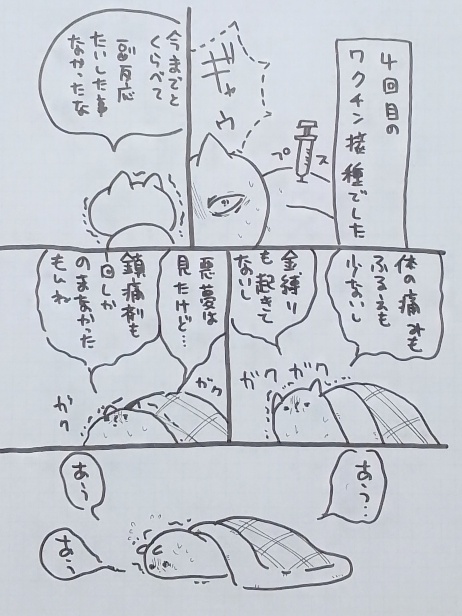 4回目の
ワクチン接種でした
プ
ス
ギャウ
今までと
くらべて
副反応
たいした事
なかったな
体の痛みも
ふるえも
少ないし
金縛り
も起きて
ないし
ガク
ガク
悪夢は
見たけど…
鎮痛剤も
1回しか
のまなかった
もんね
ガク
ガク
あう…
あう
あう